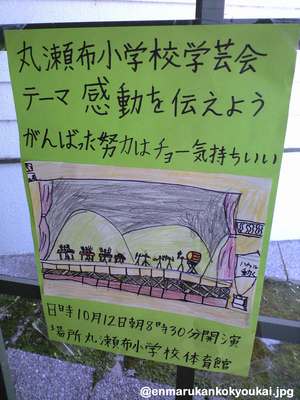 丸瀬布小学校学芸会
テーマ 感動を伝えよう
がんばった努力はチョー気持ちいい
日時10月12日朝8時30分開演
場所丸瀬布小学校体育館
@enmarukankokyoukai.jpg